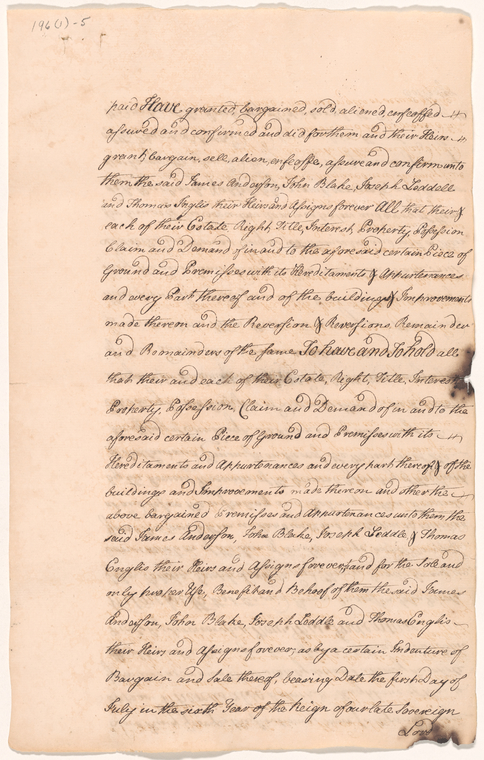 196(1)-5
paid Have granted, bargained, sold, aliened, enfeoffed
assured and confirmed and did for them and their Heirs
grant, bargain, sell, alien, enfeoffe, assure and confirm unto
them the said James Anderson, John Blake, Joseph Leddell
and Thomas Ingles their Heirs and Assigns forever All that their &
each of their Estate, Right, Title, Interest, Property, Possession
Claim and Demand of in and to the aforesaid certain Piece of
Ground and Premisses with its Hereditaments & Appurtenances
and every Part thereof and of the buildings & Improvements
made thereon and the Reversion & Reversions, Remainder
and Remainders of the same To have and To hold all
that their and each of their Estate, Right, Title, Interest
Property, Possession, Claim and Demand of in and to the
aforesaid certain Piece of Ground and Premisses with its
Hereditaments and Appurtenances and every part thereof & of the
buildings and Improvements made thereon and other the
above bargained Premisses and Appurtenances unto them the
said James Anderson, John Blake, Joseph Leddle & Thomas
Englis their Heirs and Assigns forever, and for the sole and
only proper Use, Benefit and Behoof of them the said James
Anderson, John Blake, Joseph Leddle and Thomas Englis
their Heirs and Assigns forever; as by a certain Indenture of
Bargain and Sale thereof, bearing Date the first Day of
July in the sixth Year of the Reign of our late Sovereign